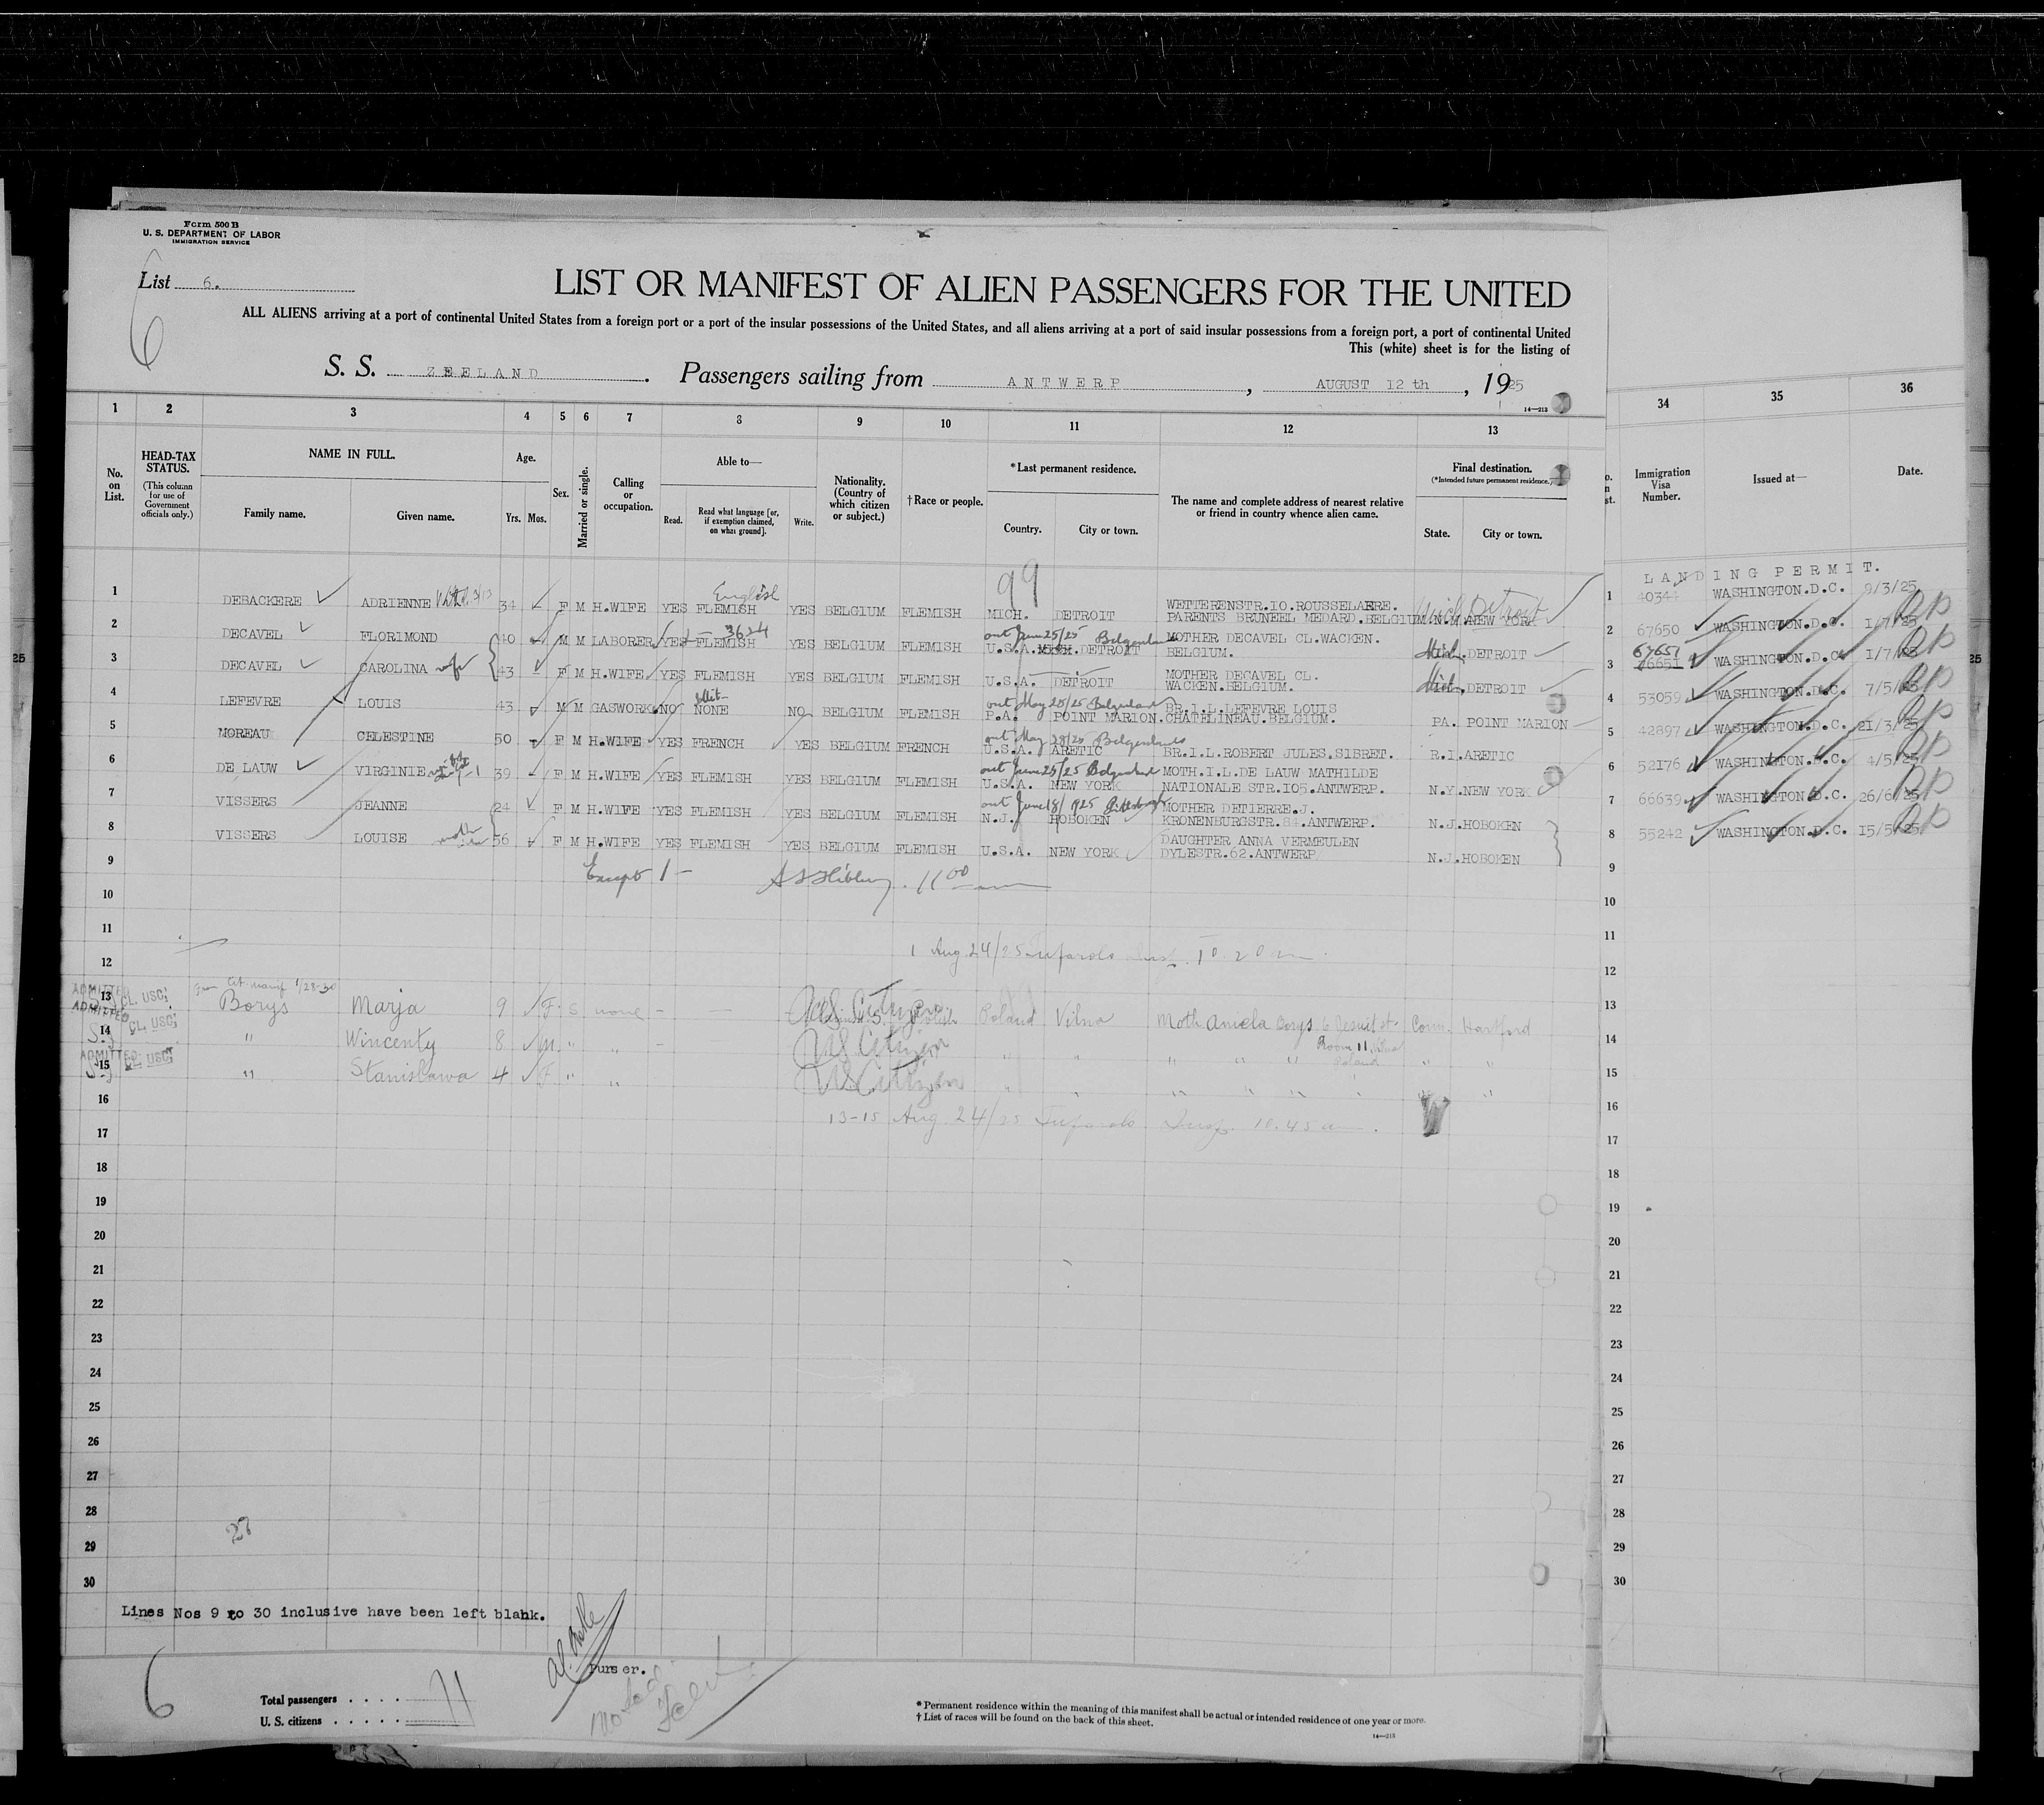 Form 500 B
U. S. DEPARTMENT OF LABOR
IMMIGRATION SERVICE
List 6.
6
LIST OR MANIFEST OF ALIEN PASSENGERS FOR THE UNITED
ALL ALIENS arriving at a port of continental United States from a foreign port or a port of the insular possessions of the United States, and all aliens arriving at a port of said insular possessions from a foreign port, a port of continental United
This (white) sheet is for the listing of
S. S. ZEELAND. Passengers sailing from ANTWERP, AUGUST 12 th, 1925
14—213
1 2 3 4 5 6 7 8 9 10 11 12 13 34 35 36
No. on List.
HEAD-TAX STATUS.
(This column for use of Government officials only.)
NAME IN FULL.
Family name. Given name.
Age.
Yrs. Mos.
Sex.
Married or single.
Calling or occupation.
Able to—
Read. Read what language [or, if exemption claimed, on what ground]. Write.
Nationality. (Country of which citizen or subject.)
†Race or people.
*Last permanent residence.
Country. City or town.
The name and complete address of nearest relative or friend in country whence alien came.
Final destination.
(*Intended future permanent residence.)
State. City or town.
Immigration Visa Number.
Issued at—
Date.
99
LANDING PERMIT.
English
1 DEBACKERE ADRIENNE 34 F M H.WIFE YES FLEMISH YES BELGIUM FLEMISH MICH. DETROIT WETTERENSTR.IO.ROUSSELAERE. PARENTS BRUNEEL MEDARD.BELGIUM N.Y. NEW YORK Mich Detroit 1 40344 WASHINGTON.D.C. 9/3/25
3624
out June 25/25 Belgenland
2 DECAVEL FLORIMOND 40 M M LABORER YES FLEMISH YES BELGIUM FLEMISH U.S.A. MICH. DETROIT MOTHER DECAVEL CL.WACKEN. BELGIUM. Mich. DETROIT 2 67650 WASHINGTON.D.C. 1/7/25
3 DECAVEL CAROLINA wife 43 F M H.WIFE YES FLEMISH YES BELGIUM FLEMISH U.S.A. DETROIT MOTHER DECAVEL CL. WACKEN.BELGIUM. Mich. DETROIT 3 67651 66651 WASHINGTON.D.C. 1/7/25
out May 28/25 Belgenland
4 LEFEVRE LOUIS 43 M M GASWORK. NO NONE NO BELGIUM FLEMISH P.A. POINT MARION. BR.I.L.LEFEVRE LOUIS CHATELINEAU.BELGIUM. PA. POINT MARION 4 53059 WASHINGTON.D.C. 7/5/25
out May 28/25 Belgenland
5 MOREAU CELESTINE 50 F M H.WIFE YES FRENCH YES BELGIUM FRENCH U.S.A. ARETIC BR.I.L.ROBERT JULES.SIBRET. R.I.ARETIC 5 42897 WASHINGTON.D.C. 21/3/25
out June 25/25 Belgenland
6 DE LAUW VIRGINIE 39 F M H.WIFE YES FLEMISH YES BELGIUM FLEMISH U.S.A. NEW YORK MOTH.I.L.DE LAUW MATHILDE NATIONALE STR.IO5.ANTWERP. N.Y.NEW YORK 6 52176 WASHINGTON.D.C. 4/5/25
out June 18/1925 Pittsburgh
7 VISSERS JEANNE 24 F M H.WIFE YES FLEMISH YES BELGIUM FLEMISH N.J. HOBOKEN MOTHER DETIERRE.J. KRONENBURGSTR.84.ANTWERP. N.J.HOBOKEN 7 66639 WASHINGTON D.C. 26/6/25
8 VISSERS LOUISE 56 F M H.WIFE YES FLEMISH YES BELGIUM FLEMISH U.S.A. NEW YORK DAUGHTER ANNA VERMEULEN DYLESTR.62.ANTWERP N.J.HOBOKEN 8 55242 WASHINGTON.D.C. 15/5/25
9 Except 1 — 11 00 9
10 10
11 11
1 Aug 24/25 Insp. 10.20 am.
12 12
ADMITTED CL. USC.
13 Borys Marja 9 F S none – — U.S. Citizen Polish Poland Vilna Moth Aniela Borys 6 Jesuit st. Room 11 Vilna Poland Conn. Hartford 13
ADMITTED CL. USC.
14 " Wincenty 8 M " " – US Citizen " " " " " " " 14
ADMITTED CL. USC.
15 " Stanislawa 4 F " " US Citizen " " " " " " " 15
16 13-15 Aug 24/25 Insp. 10.45 am. 16
17 17
18 18
19 19
20 20
21 21
22 22
23 23
24 24
25 25
26 26
27 27
28 28
29 29
30 30
Lines Nos 9 to 30 inclusive have been left blank.
Purser.
6
Total passengers . . . . 11
U. S. citizens . . . . .
Noted
* Permanent residence within the meaning of this manifest shall be actual or intended residence of one year or more.
† List of races will be found on the back of this sheet.
14—213